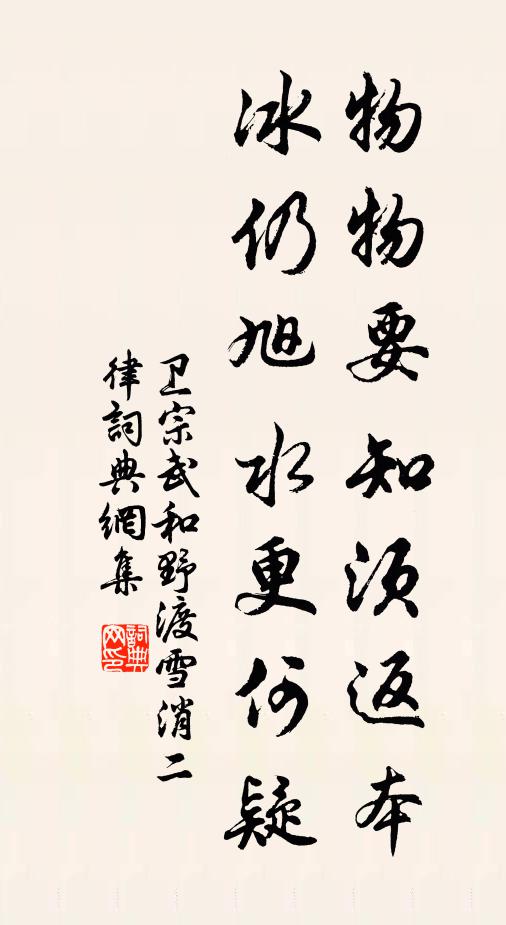 物物要知须返本
冰仍旭水更何疑
卫宗武和野渡雪消二
律詞典網集
詞典
网印